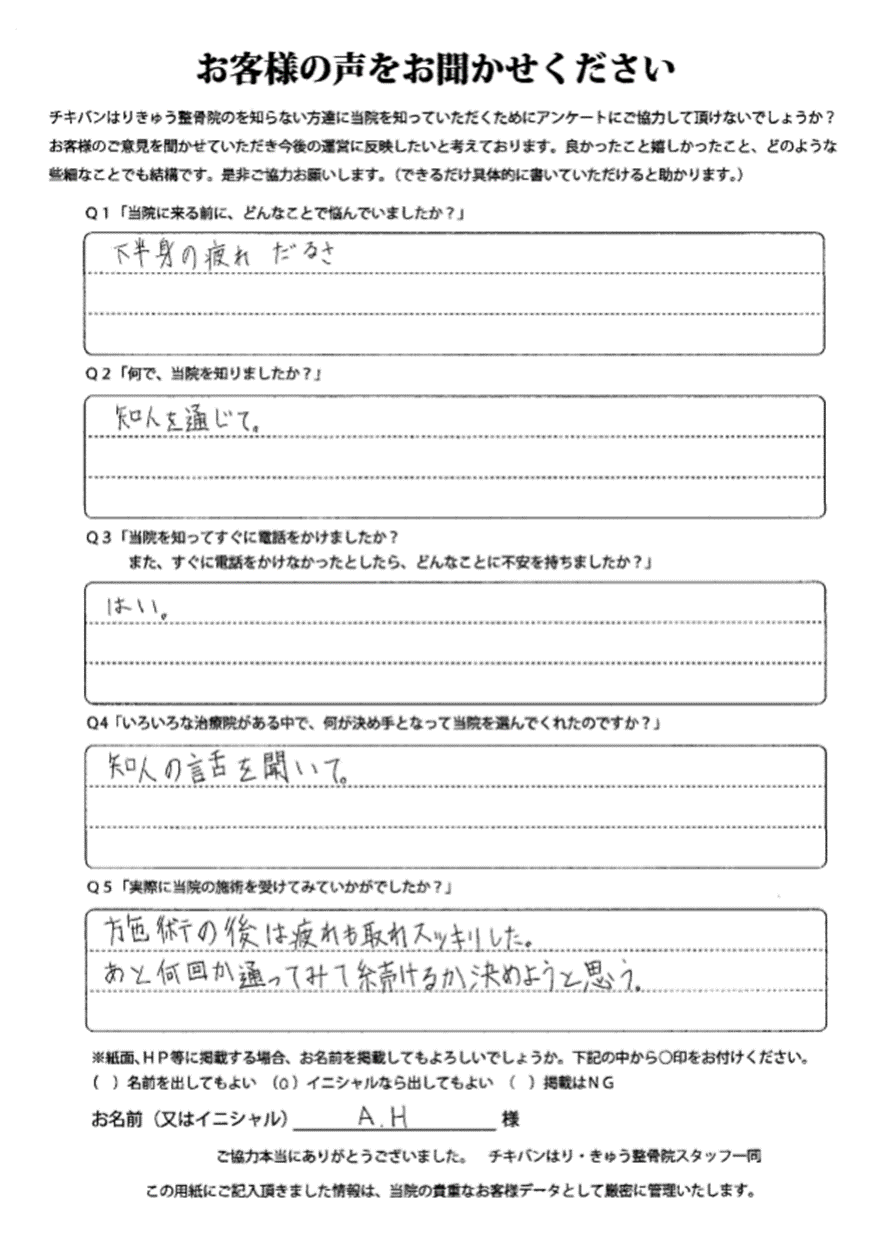 お客様の声をお聞かせください
チキバンはりきゅう整骨院のを知らない方達に当院を知っていただくためにアンケートにご協力して頂けないでしょうか？
お客様のご意見を聞かせていただき今後の運営に反映したいと考えております。良かったこと嬉しかったこと、どのような
些細なことでも結構です。是非ご協力お願いします。（できるだけ具体的に書いていただけると助かります。）
Ｑ１「当院に来る前に、どんなことで悩んでいましたか？」
下半身の疲れ だるさ
Ｑ２「何で、当院を知りましたか？」
知人を通じて。
Ｑ３「当院を知ってすぐに電話をかけましたか？
また、すぐに電話をかけなかったとしたら、どんなことに不安を持ちましたか？」
はい。
Q4「いろいろな治療院がある中で、何が決め手となって当院を選んでくれたのですか？」
知人の話を聞いて。
Ｑ５「実際に当院の施術を受けてみていかがでしたか？」
施術の後は疲れも取れスッキリした。
あと何回か通ってみて続けるか決めようと思う。
※紙面、ＨＰ等に掲載する場合、お名前を掲載してもよろしいでしょうか。下記の中から〇印をお付けください。
（ ）名前を出してもよい （○）イニシャルなら出してもよい （ ）掲載はＮＧ
お名前（又はイニシャル） A.H 様
ご協力本当にありがとうございました。 チキバンはり・きゅう整骨院スタッフ一同
この用紙にご記入頂きました情報は、当院の貴重なお客様データとして厳密に管理いたします。